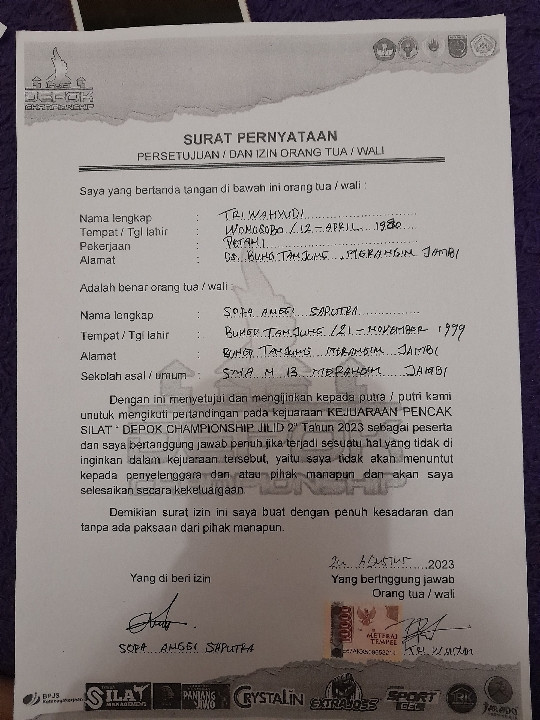 DEPOK
CHAMPIONSHIP
SURAT PERNYATAAN
PERSETUJUAN / DAN IZIN ORANG TUA / WALI
Saya yang bertanda tangan di bawah ini orang tua / wali :
Nama lengkap : TRI WAHYUDI
Tempat / Tgl lahir : WONOSOBO / 12 - APRIL 1980
Pekerjaan : PETANI
Alamat : DS. BUNGO TANJUNG MERANGIN JAMBI
Adalah benar orang tua / wali :
Nama lengkap : SOPA ANGGI SAPUTRA
Tempat / Tgl lahir : BUNGO TANJUNG / 21 - NOVEMBER 1999
Alamat : BUNGO TANJUNG MERANGIN JAMBI
Sekolah asal / umum : SMA N 13 MERANGIN JAMBI
Dengan ini menyetujui dan mengijinkan kepada putra / putri kami
unutuk mengikuti pertandingan pada kejuaraan KEJUARAAN PENCAK
SILAT " DEPOK CHAMPIONSHIP JILID 2" Tahun 2023 sebagai peserta
dan saya bertanggung jawab penuh jika terjadi sesuatu hal yang tidak di
inginkan dalam kejuaraan tersebut, yaitu saya tidak akah menuntut
kepada penyelenggara dan atau pihak manapun dan akan saya
selesaikan secara kekeluargaan.
CHAMPIONSHIP
Demikian surat izin ini saya buat dengan penuh kesadaran dan
tanpa ada paksaan dari pihak manapun.
2023
Yang di beri izin
Yang bertnggung jawab
Orang tua / wali
10000
METERAI
TEMPEL
SOPA ANGGI SAPUTRA
BPJS
Ketenagakerjaan
SILAT
MANAGEMENT
PANJANG
JIWO
CRYSTALIN
EXTRAJOSS
SPORT
GEL